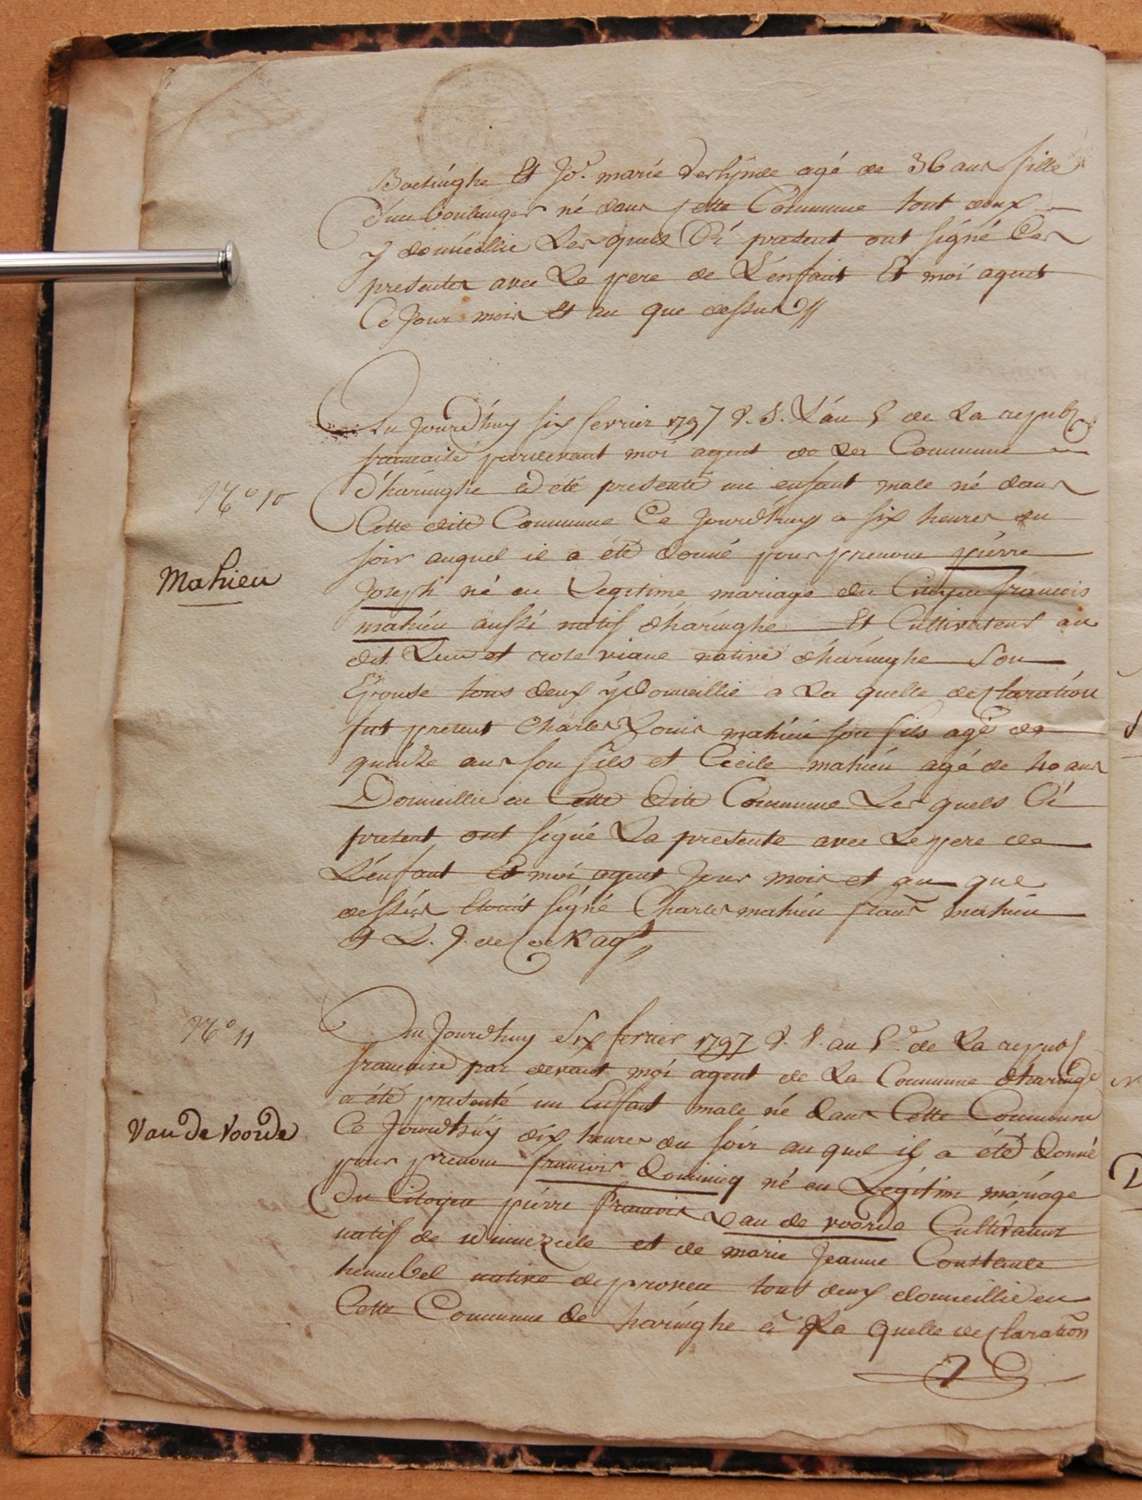 Boesinghe Et Jo. marie Verlijnde agé de 36 ans fille
d'un boulanger né dans cette Commune tout deux
y domicillie Les quels Ci present ont signé Les
presentes avec Le pere de L'enfant Et moi agent
Ce Jour mois Et an que dessus //
Du Jourd'huy six fevrier 1797 V. S. L'an 5 de La republ
francaise pardevant moi agent de La Commune
d'haringhe a eté presenté un enfant male né dans
Cette dite Commune Ce Jourd'huy a six heures du
soir auquel il a été donné pour prenom pierre
N.o 10
Mahieu
Joseph né en Legitime mariage du Citoyen francois
mahieu aussi natif d'haringhe Et Cultivateur au
dit Lieu et rose viane native d'haringhe Son
Epouse tous deux ÿ Domicillie a La quelle declaration
fut present Charles Louis mahieu son fils agé de
quinze ans son fils et Cecile mahieu agé de 40 ans
Domicillie en Cette dite Commune Les quels Ci
present ont signé La presente avec Le pere de
L'enfant Et moi agent Jour mois et an que
dessus Etoit signé Charles mahieu frans mahieu
Et L. J. de Cock agt
N.o 11
Van de Voorde
Du Jourd'huy Six fevrier 1797 V. S. an 5.e de La republ
francaise par devant moi agent de La Commune d'haringe
a été presenté un Enfant male né dans Cette Commune
Ce Jourd'huÿ dix heures du soir au quel il a été donné
pour prenom francois dominicq né en Legitime mariage
Du Citoyen pierre francois Van de voorde Cultivateur
natif de winnezeele et de marie Jeanne Constance
hennebel native de proven tout deux domicillie en
Cette Commune de haringhe a La quelle declaration